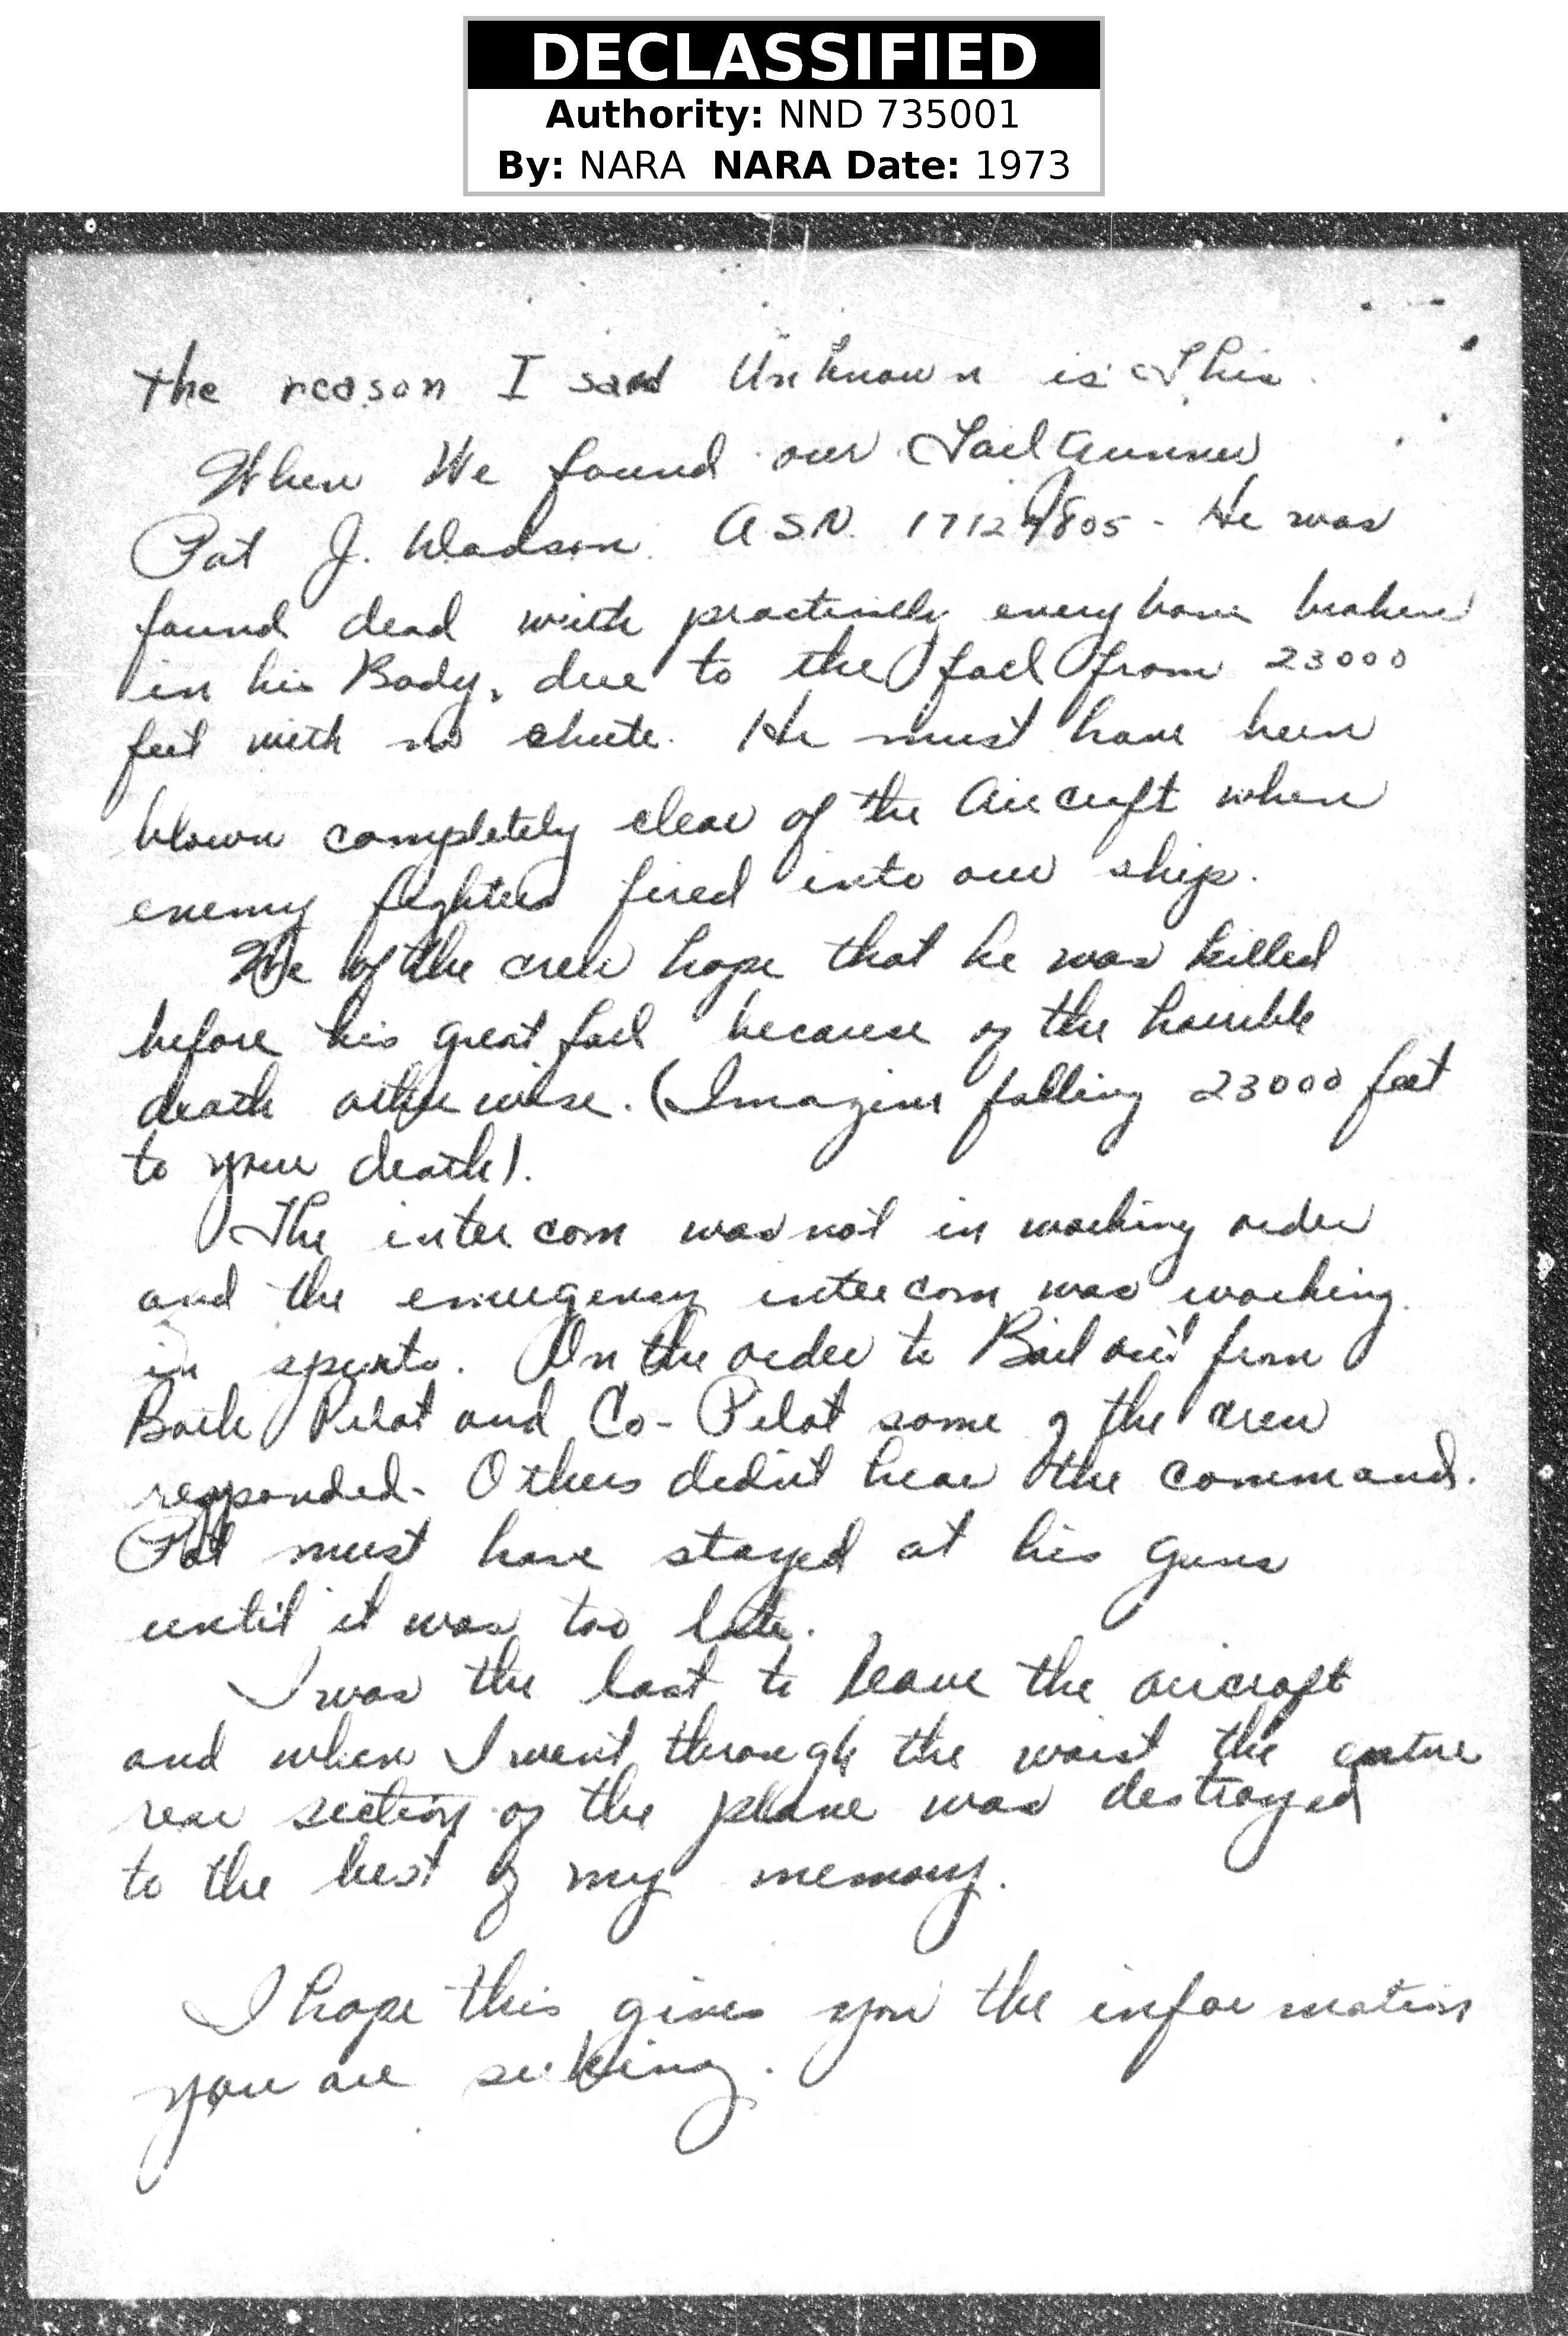 DECLASSIFIED
Authority: NND 735001
By: NARA NARA Date: 1973
the reason I said Unknown is This
When We found our Tail Gunner
Pat J. Wadson. A.S.N. 17129805 - He was
found dead with practically every bone broken
in his Body, due to the fall from 23000
feet with no chute. He must have been
blown completely clear of the Aircraft when
enemy fighters fired into our ship.
We of the crew hope that he was killed
before his great fall because of the horrible
death otherwise. (Imagine falling 23000 feet
to your death).
The intercom was not in working order
and the emergency intercom was working
in spurts. On the order to Bail out from
Both Pilot and Co-Pilot some of the crew
responded. Others didn't hear the command.
Pat must have stayed at his guns
until it was too late.
I was the last to leave the aircraft
and when I went through the waist the entire
rear section of the plane was destroyed
to the best of my memory.
I hope this gives you the information
you are seeking.